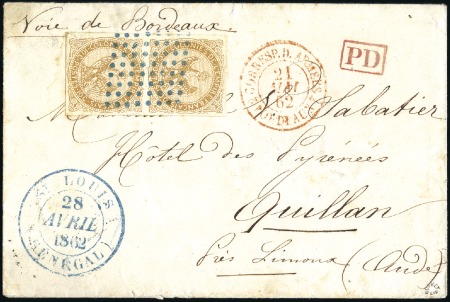 Voie de Bordeaux
PD
21
62
Sabatier
Hôtel des Pyrénées
Quillan
Près Limoux (Aude)
ST LOUIS
28
AVRIL
1862
(SÉNÉGAL)